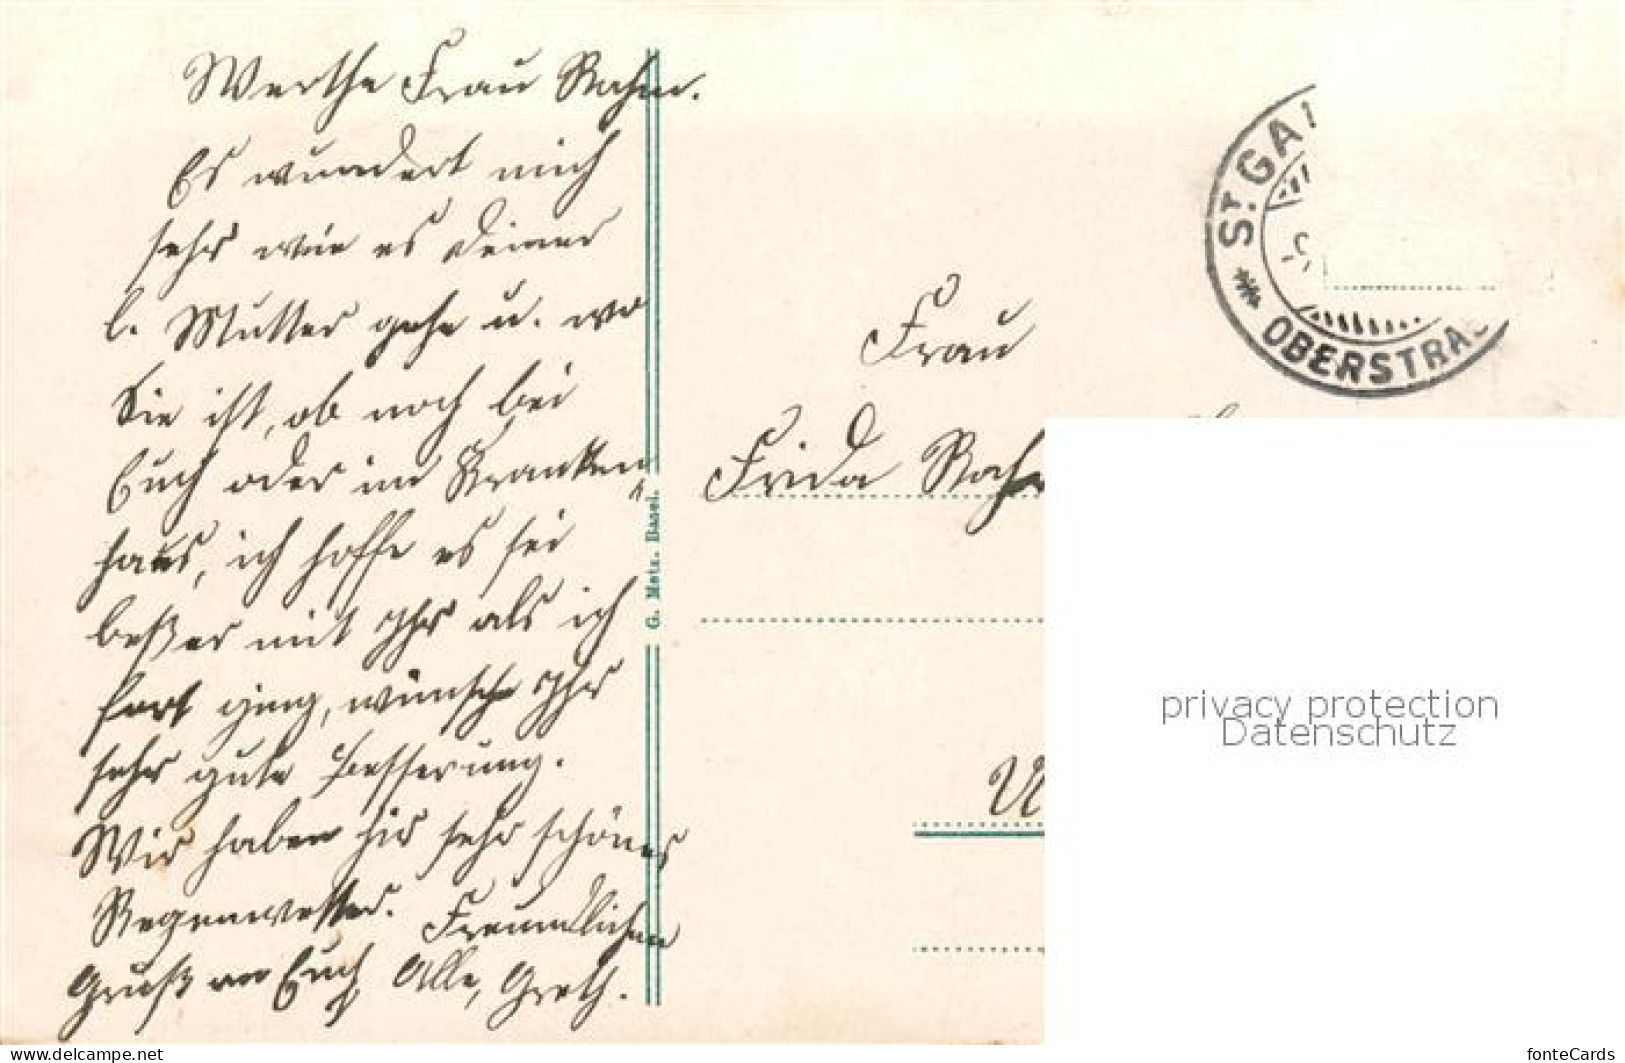 Werthe Frau Rahm.
Es wundert mich
sehr wie es Deiner
l. Mutter gehe u. wo
Sie ist, ob noch bei
Euch oder im Kranken
haus, ich hoffe es sei
beßer mit Ihr als ich
fort ging, wünsche Ihr
sehr gute Besserung.
Wir haben hir sehr schönes
Regenwetter. Freundlichen
Gruß an Euch Alle, Greth.
G. Metz, Basel.
St. GA
OBERSTRA
Frau
Frida Rahm
U
privacy protection
Datenschutz
www.delcampe.net
fonteCards